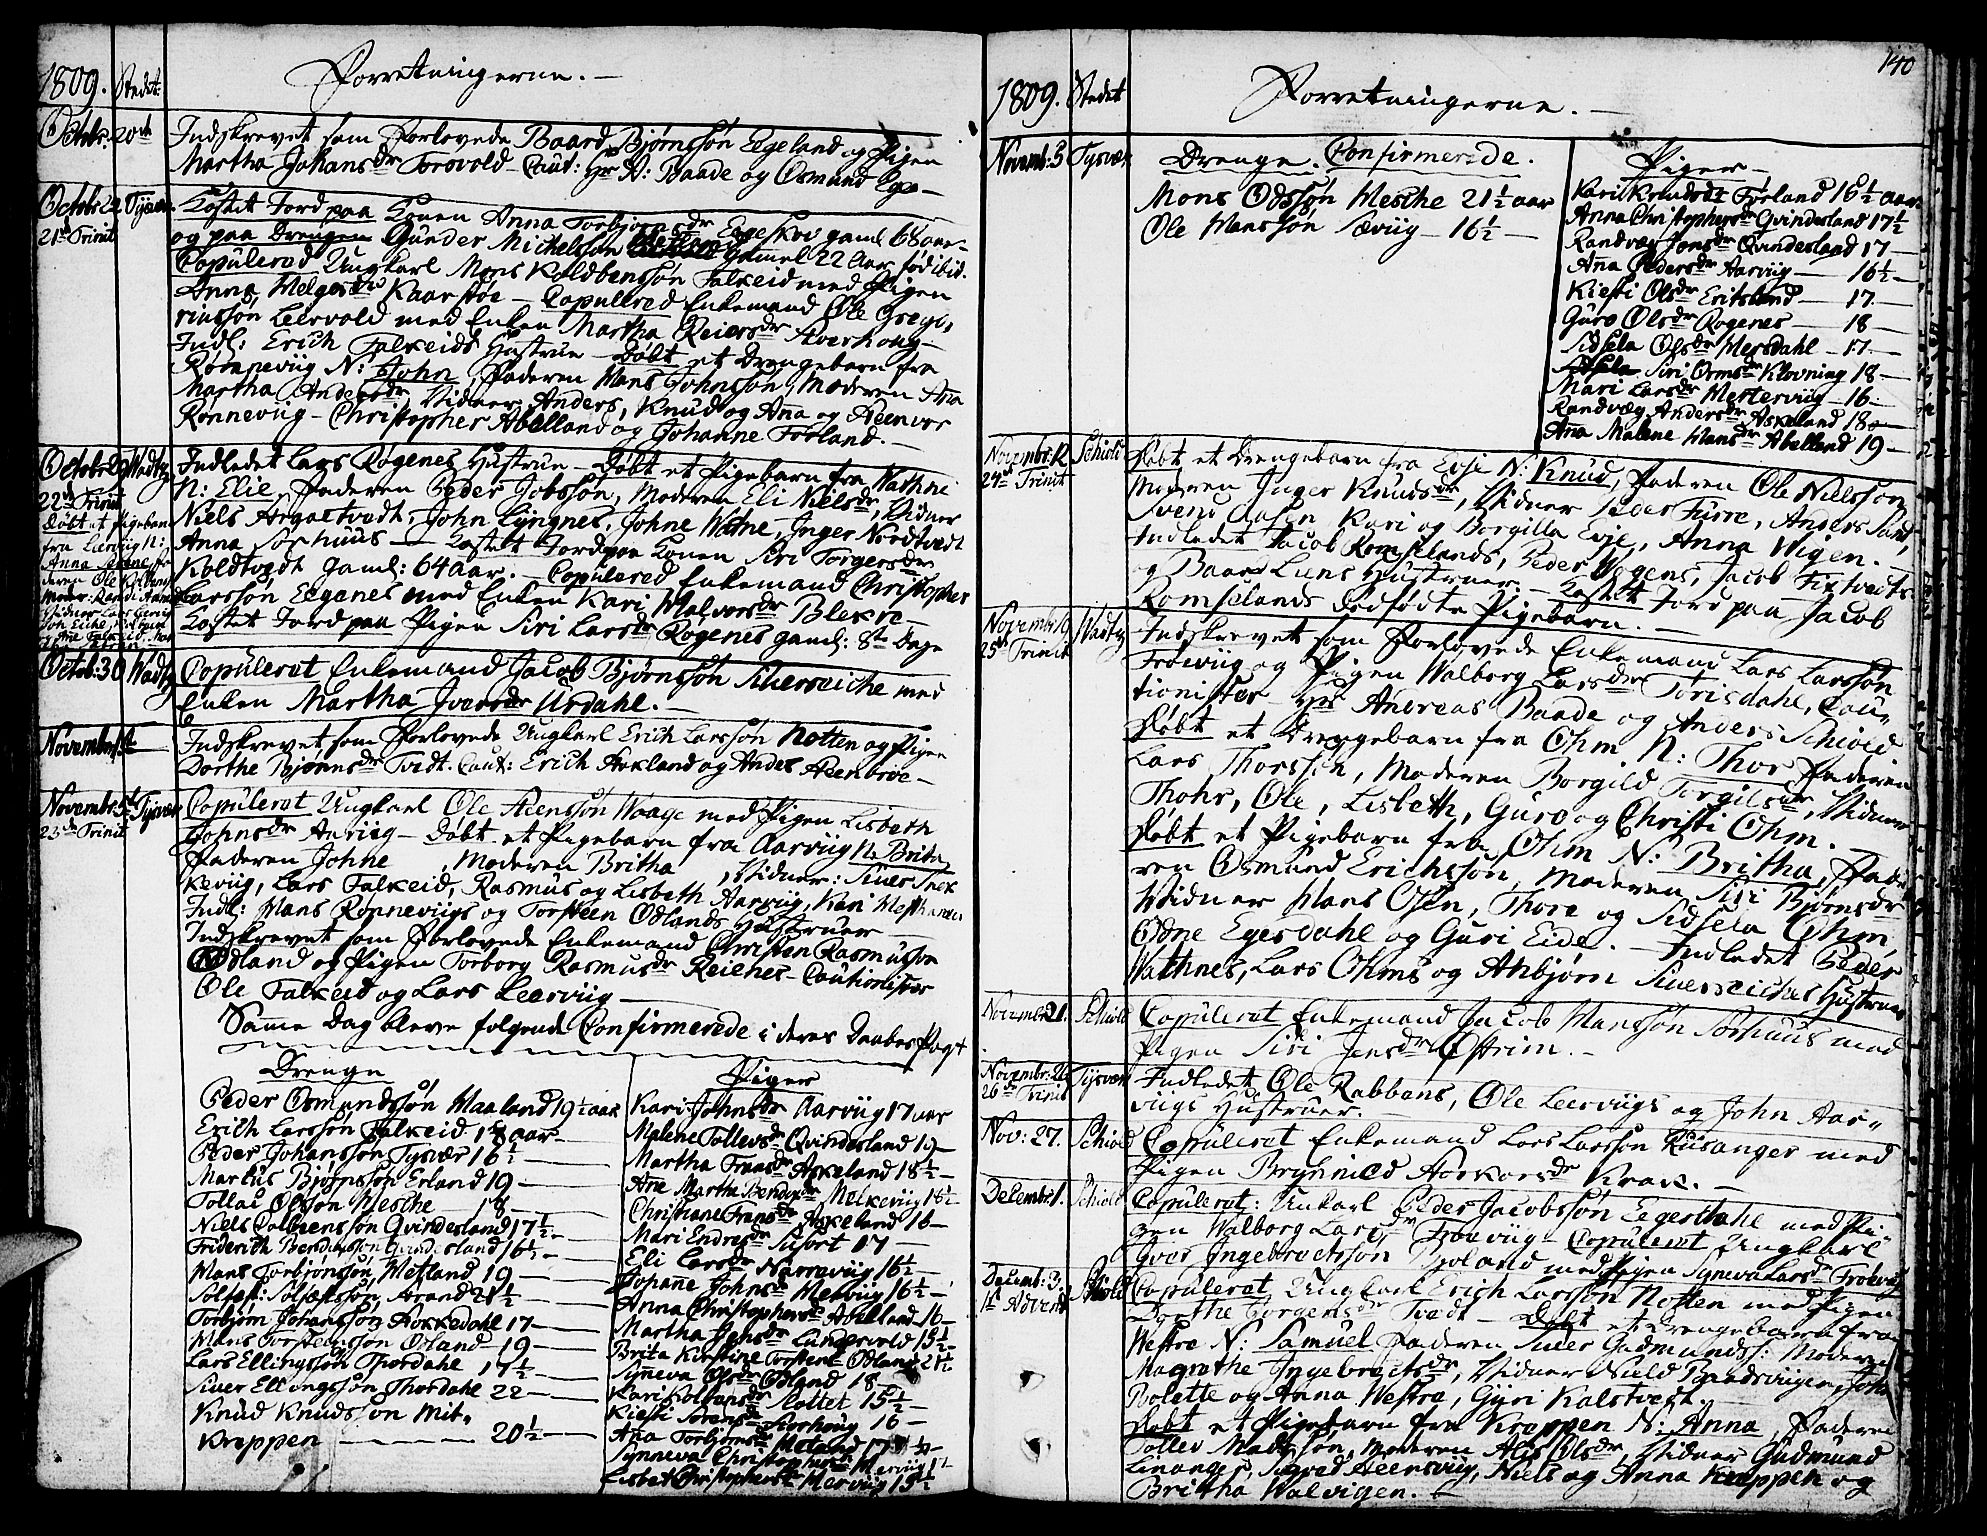 1809. Stedet. Forretningerne. —
Octbr. 20de Indskrevet som Forlovede Baard Bjørnssøn Egeland og Pigen
Martha Johansdr Torvold — Caut: Hr A: Baade og Osmund Ege-
Octobr 22 Tysvær. Kastet Jord paa Konen Anna Torbjørnsdr Egeskov gaml 68 aar
21de Trinit og paa Drengen Gunder Michelssøn gamel 22 Aar fød ibid.
Copulered Ungkarl Mons Koldbenssøn Falkeid med Pigen
Anna Helgesdr Kaarstøe — Copullred Enkemand Ole Grego,
riussøn Leervold med Enken Martha Reiersdr Averhoug —
Indl: Erich Falkeids Hustrue — Døbt et Drengebarn fra
Rønneviig N: John, Faderen Mans Johnssøn, Moderen
Martha Andersdr, Vidner Anders, Knud og Aña og
Rønneviig — Christopher Abelland og Johanne Førland. —
Octobr 29 Wadtz Indledet Lars Røgenes Hustrue — Døbt et Pigebarn fra Wathne
22de Trinit N: Elie, Faderen Peder Jobssøn, Moderen Eli Nielsdr, Vidner
Døbt et Pigebarn Niels Argaltvedt, John Lyngnes, Johne Watne, Inger Nordtvedt
fra Leerviig N: Anna Sørhuus — Kastet Jord paa Konen Siri Torgersdr
Anna Koldtvedt gaml: 64 aar. — Copulered Enkemand Christopher
deren Ole Larssøn Eeganes med Enken Kari Halvorsdr Blekre —
Kastet Jord paa Pigen Siri Larsdr Røgenes gaml: 8te Dage
Octob: 30 Wadtz Copuleret Enkemand Jacob Bjørnssøn Siverseiche med
Enken Martha Iversdr Urdahl. —
Novembr 1ste Indskrevet som Forlovede Ungkarl Erich Larssøn Notten og Pigen
Dorthe Bjørnsdr Tvedt. Caut: Erich Aokland og Andes Steenbroe —
Novembr: 5te Tysvær Copuleret Ungkarl Ole Steenssøn Waage med Pigen Lisbeth
23de Trinit Johnsdr Aarviig — Døbt et Pigebarn fra Aarviig N: Brita
Faderen Johne , Moderen Britha , Vidner: Siver
keviig, Lars Falkeid, Rasmus og Lisbeth Aarviig, Kari
Indl: Mans Rønneviigs og Torsteen Odlands Hustruer —
Indskrevet som Forlovede Enkemand Christen Rasmussøn
Odland og Pigen Torborg Rasmusdr Reienes — Cautionister
Ole Falkeid og Lars Leerviig —
Samme Dag bleve følgende Confirmerede i deres Daabes Pagt
Drenge
Peder Osmundssøn Waaland 19½ aar
Erich Larssøn Falkeid 18 aar —
Peder Johanssøn Tysvær 16½ —
Markus Bjørnssøn Erland 19 —
Tollac Olssøn Hesche 18 —
Niels Colbeenssøn Qvindesland 17½ —
Friderich Qvindesland 16½ —
Mans Torbjørnssøn Wetland 19 —
Solfest Solfestssøn Arand 21½ —
Torbjørn Johanssøn Aokkedahl 17 —
Mans Torsteenssøn Odland 19 —
Lars Ellingssøn Thordahl 17½ —
Siver Ellingssøn Thordahl 22 —
Knud Knudssøn Mit,
Kroppen — 20½ —
Piger
Kari Johnsdr Aarviig 17 aar
Malene Tollevsdr Qvindesland 19 —
Martha Fransdr Askeland 18½ —
Ane Martha Melkeviig 16½
Christiane Fransdr Askeland 16 —
Mari Endresdr Susort 17 —
Eli Larsdr Narreviig 16½ —
Johane Johnsdr Merviig 16½ —
Anna Christophersdr Abelland 16 —
Martha Jensdr Lindervold 15½
Brita Kirstine Torstensdr Odland 21½
Synneva Olsdr Odland 18 —
Kari Slottet 15½ —
Kiesti Sørensdr Sorhoug 16 —
Ana Torbjørnsdr
Synneva Christophersdr Merviig
Lisbet Christophersdr Merviig 15½
140
1809. Stedet Forretningerne. —
Novemb: 5 Tysvær Drenge. Confirmerede. Piger
Mons Odssøn Hesche 21½ aar
Ole Manssøn Sæviig — 16½ —
Kari Knudsdr Førland 16½ aar
Anna Christophersdr Qvindesland 17½
Randvæg Jonsdr Qvindesland 17 —
Aña Pedersdr Aarviig — 16½ —
Kiesti Olsdr Eritsland — 17 —
Guro Olsdr Rogenes — 18 —
Sidsela Olsdr Mersdahl — 17 —
Siri Ormsdr Klovning 18 —
Mari Larsdr Mesterviig — 16 —
Randvæg Andersdr Askeland 18 —
Ana Malene Hansdr Abelland 19 —
Novembr: 12 Schiold Døbt et Drengebarn fra Evje N: Knud, Faderen Ole Nielssøn
24de Trinit Moderen Inger Knudsdr, Vidner Peder Furre, Anders Sand,
Svend Aasen, Kari og Borgilla Evje, Anna Wigen. —
Indledet Jacob Romselands, Peder Wogens, Jacob Fixtvedts
og Baard Liens Hustruer — Kastet Jord paa Jacob
Romselands dødfødte Pigebarn. —
Novembr 19 Wadtz Indskrevet som Forlovede Enkemand Lars Larssøn
25de Trinit Frøeviig og Pigen Walborg Larsdr Torisdahl, Cau,
tionister Hr Andreas Baade og Anders Schiold
Døbt et Drengebarn fra Ohm N: Thor Faderen
Lars Thorssøn, Moderen Borgild Torgilsdr, Vidner
Thohr, Ole, Lisbeth, Guro og Christi Ohm. —
Døbt et Pigebarn fra Ohm N: Britha, Fade,
ren Osmund Erichssøn, Moderen Siri Bjørnsdr
Vidner Hans Olsen, Thore og Sidsela Ohm,
Odne Egesdahl og Guri Eide. — Indledet Peder
Wathnes, Lars Ohms og Anbjørn Siverseiches Hustruer
Novembr 21. Schiold Copuleret Enkemand Jacob Manssøn Sørhuus med
Pigen Siri Jensdr Østrim. —
Novembr: 26 Tysvær Indledet Ole Rabbens, Ole Leerviigs og John Aar,
26de Trinit viigs Hustruer. —
Nov: 27. Schiold Copuleret Enkemand Lars Larssøn Rusanger med
Pigen Brynnild Aorkorsdr Krak. —
Decembr 1. Schiold Copuleret: Unkarl Peder Jacobssøn Eegersdahl med Pi-
gen Walborg Larsdr Frøeviig — Copuleret Ungkarl
Gver Ingebretssøn Bjoland med Pigen Syneva Larsdr Frøeviig
Decemb: 3. Schiold Copuleret Ungkarl Erich Larssøn Notten med Pigen
1ste Advent Dorthe Tvedt — Døbt et Drengebarn fra
Westre N: Samuel Faderen Siver Gudmundss: Moderen
Magrethe Ingebretsdr, Vidner Nield Baadsviigen, John
Bolette og Anna Westre, Gyri Kalstvedt. —
Døbt et Pigebarn fra Kroppen N: Anna, Faderen
Tollev Madssøn, Moderen Ales Olsdr, Vidner Gudmund
Linanger, Sivred Steensviig, Niels og Anna Kroppen og
Britha Walvigen. —